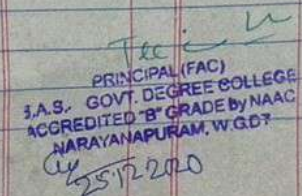 PRINCIPAL (FAC)
S.A.S. GOVT. DEGREE COLLEGE
ACCREDITED "B" GRADE by NAAC
NARAYANAPURAM, W.G.DT
25.12.2020